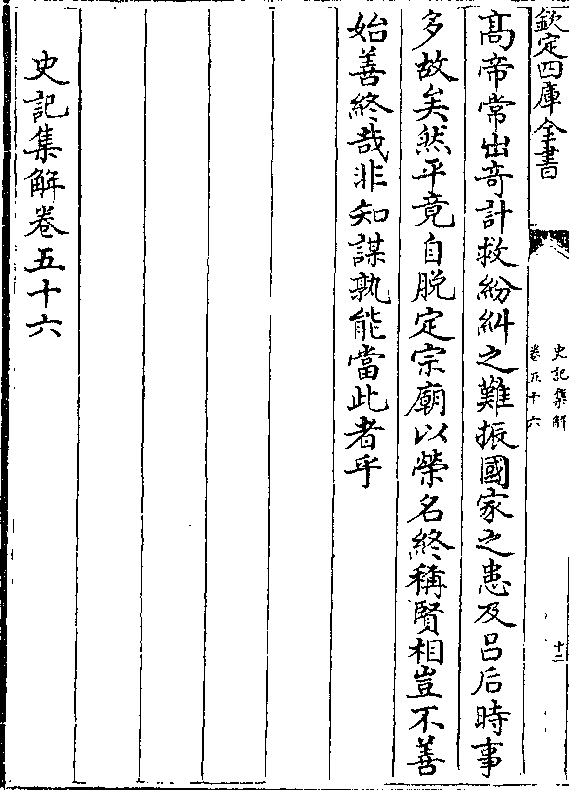 欽定四庫全書
史記集解
卷五十六
十二
髙帝常出竒計救紛糾之難振國家之患及吕后時事
多故矣然平竟自脱定宗廟以榮名終稱賢相豈不善
始善終哉非知謀孰能當此者乎
史記集解卷五十六